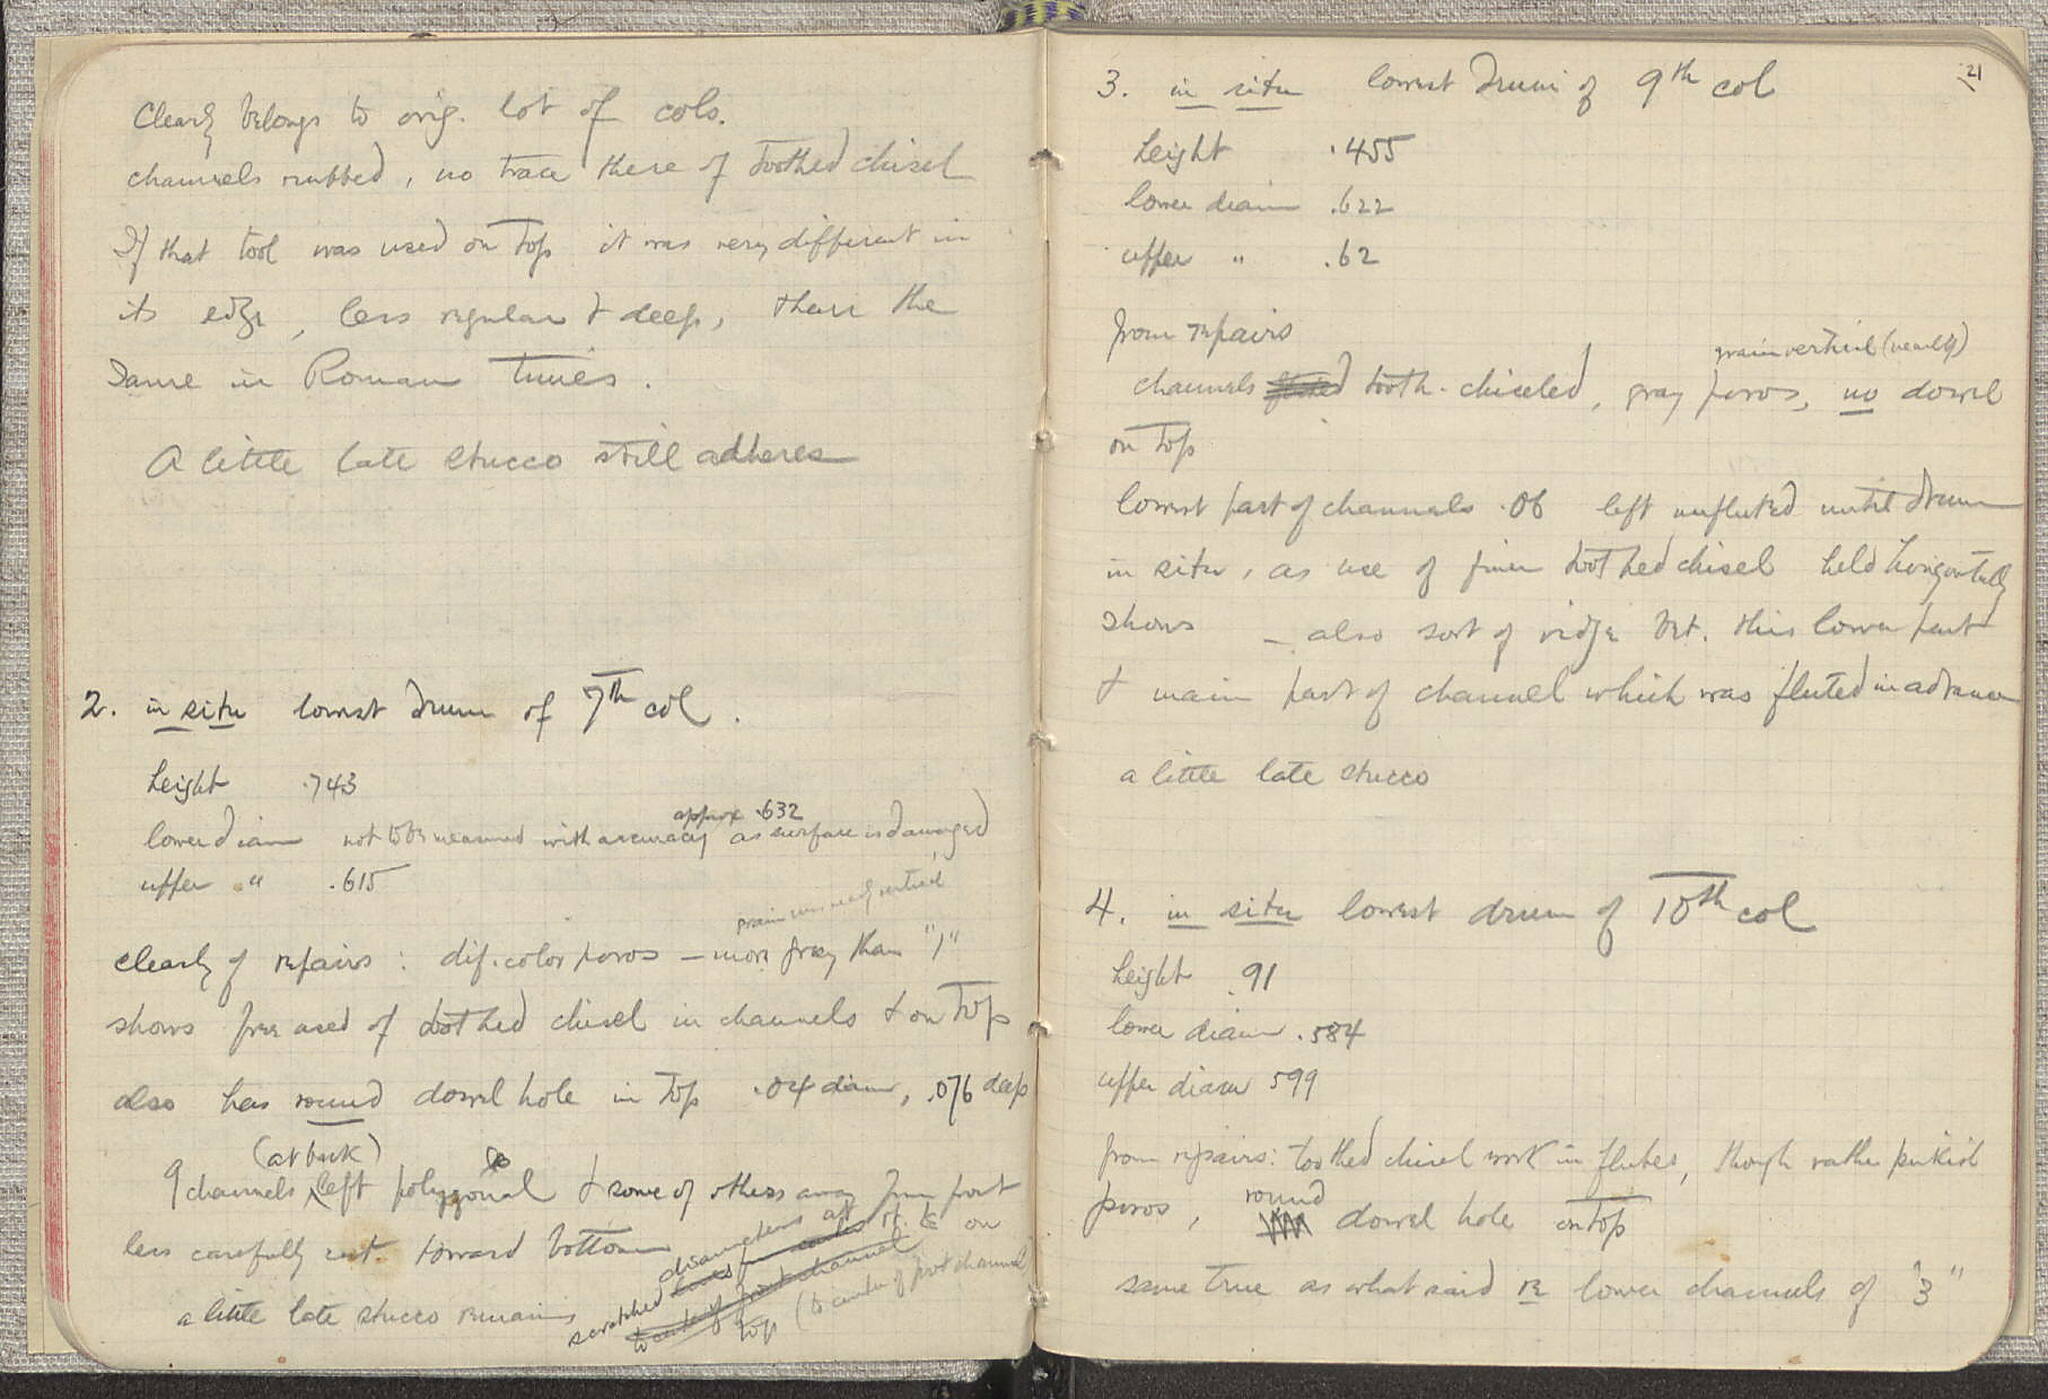 Clearly belongs to orig. lot of cols.
channels rubbed, no trace there of toothed chisel
If that tool was used on top it was very different in
its edge, less regular & deep, than the
same in Roman times.
A little late stucco still adheres
2. in situ lowest drum of 7th col.
height .743
approx .632
lower diam not to be measured with accuracy as surface is damaged
upper " .615
grain nearly vertical
clearly of repairs: dif. color poros – more gray than "1"
shows free used of toothed chisel in channels & on top
also has round dowel hole in top .04 diam, .076 deep
(at back)
9 channels left polygonal & some of others away from front
less carefully cut toward bottom
a little late stucco remains
scratched diameters at rt. ∠ on
top (to center of front channel
21
3. in situ lowest drum of 9th col
height .455
lower diam .622
upper " .62
from repairs
grain vertical (nearly)
channels fluted tooth-chiseled, gray poros, no dowel
on top
lowest part of channels .06 left unfluted until drum
in situ, as use of finer toothed chisel held horizontally
shows – also sort of ridge bet. this lower part
& main part of channel which was fluted in advance
a little late stucco
4. in situ lowest drum of 10th col
height .91
lower diam .584
upper diam 599
from repairs: toothed chisel work in flutes, though rather pinkish
poros, round dowel hole on top
same true as what said re lower channels of "3"